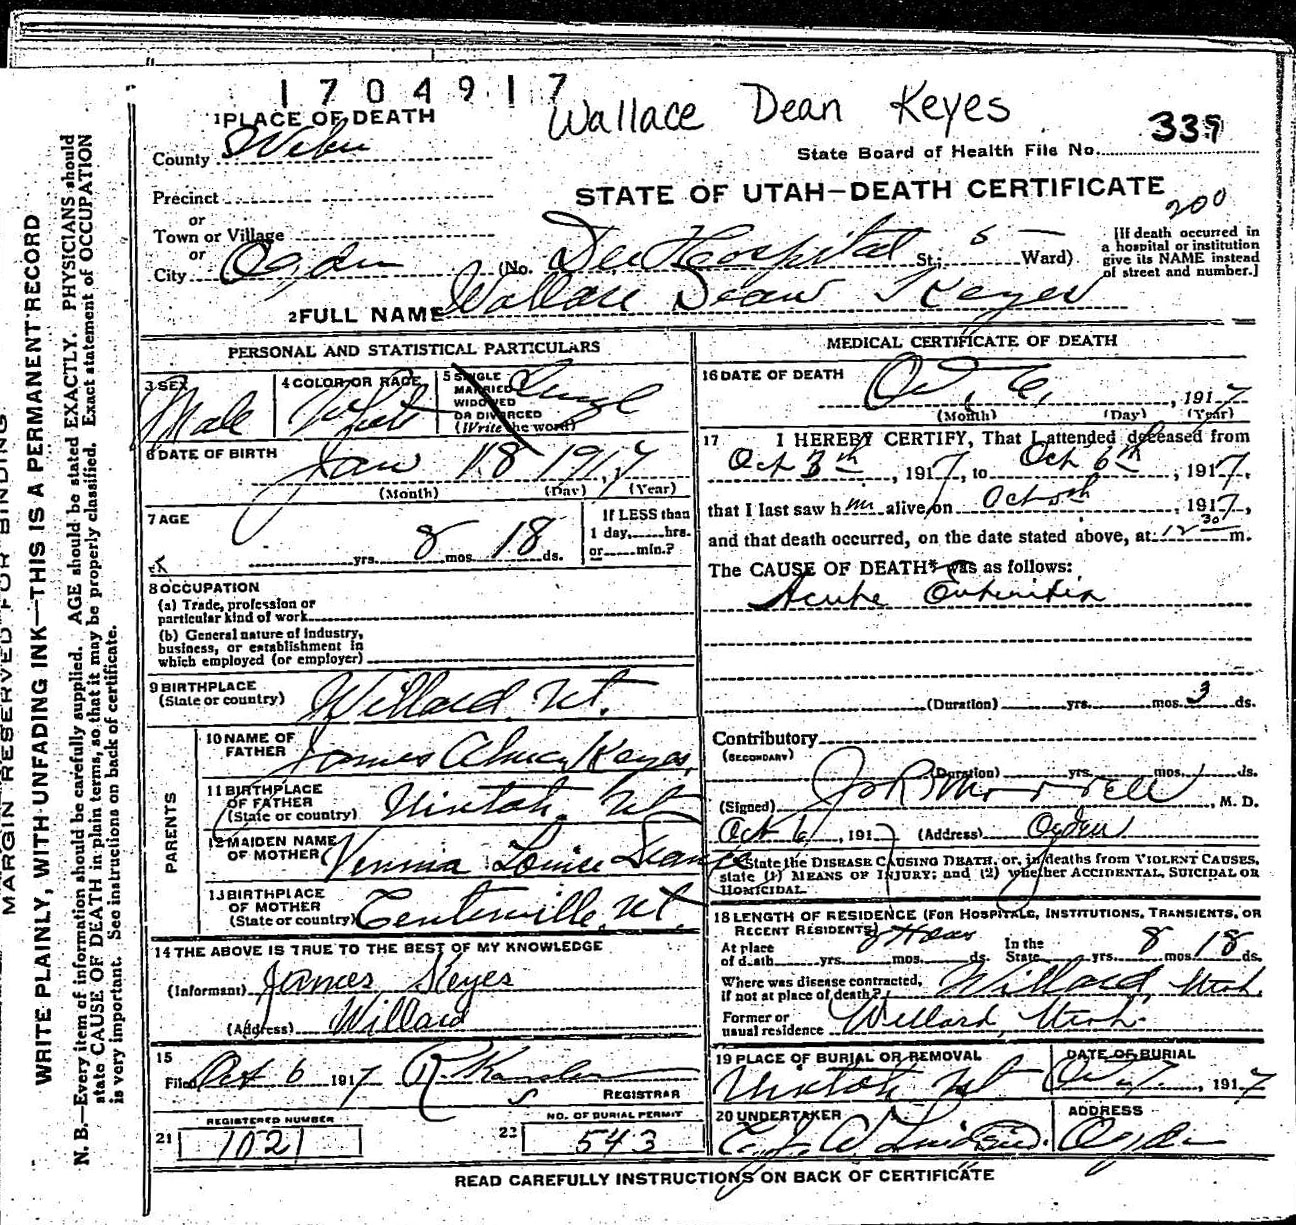 1704917
Wallace Dean Keyes
339
1 PLACE OF DEATH
County Weber
State Board of Health File No.
Precinct
STATE OF UTAH—DEATH CERTIFICATE
200
or
Town or Village
or
City Ogden
(No. Dee Hospital St; 5 — Ward)
[If death occurred in
a hospital or institution
give its NAME instead
of street and number.]
2 FULL NAME Wallace Dean Keyes
PERSONAL AND STATISTICAL PARTICULARS
3 SEX
Male
4 COLOR OR RACE
White
5 SINGLE
MARRIED
WIDOWED
OR DIVORCED
(Write the word)
Single
6 DATE OF BIRTH
Jan 18 1917
(Month) (Day) (Year)
7 AGE
yrs. 8 mos. 18 ds.
If LESS than
1 day, hrs.
or min.?
8 OCCUPATION
(a) Trade, profession or
particular kind of work
(b) General nature of industry,
business, or establishment in
which employed (or employer)
9 BIRTHPLACE
(State or country) Willard Ut.
PARENTS
10 NAME OF
FATHER James Keyes
11 BIRTHPLACE
OF FATHER
(State or country) Uintah Ut
12 MAIDEN NAME
OF MOTHER Louise
13 BIRTHPLACE
OF MOTHER
(State or country) Centerville, Ut.
14 THE ABOVE IS TRUE TO THE BEST OF MY KNOWLEDGE
(Informant) James Keyes
(Address) Willard
15
Filed Oct 6 1917
REGISTRAR
REGISTERED NUMBER
21 1021
NO. OF BURIAL PERMIT
22 543
MEDICAL CERTIFICATE OF DEATH
16 DATE OF DEATH
Oct, 6, 1917
(Month) (Day) (Year)
17 I HEREBY CERTIFY, That I attended deceased from
Oct 3th, 1917, to Oct 6th, 1917,
that I last saw him alive on Oct 5th, 1917,
and that death occurred, on the date stated above, at 12 30 m.
The CAUSE OF DEATH* was as follows:
Acute Enteritis
(Duration) yrs. mos. 3 ds.
Contributory
(SECONDARY)
(Duration) yrs. mos. ds.
(Signed) Morrell, M. D.
Oct 6, 1917 (Address) Ogden
State the DISEASE CAUSING DEATH, or, in deaths from VIOLENT CAUSES,
state (1) MEANS OF INJURY; and (2) whether ACCIDENTAL, SUICIDAL OR
HOMICIDAL
18 LENGTH OF RESIDENCE (FOR HOSPITALS, INSTITUTIONS, TRANSIENTS, OR
RECENT RESIDENTS)
At place
of death yrs. mos. ds.
In the
State yrs. 8 mos 18 ds.
Where was disease contracted,
if not at place of death? Willard, Utah.
Former or
usual residence Willard, Utah.
19 PLACE OF BURIAL OR REMOVAL
Uintah Ut
DATE OF BURIAL
Oct, 7, 1917
20 UNDERTAKER
ADDRESS
Ogden
READ CAREFULLY INSTRUCTIONS ON BACK OF CERTIFICATE
MARGIN RESERVED FOR BINDING
WRITE PLAINLY, WITH UNFADING INK—THIS IS A PERMANENT RECORD
N. B.—Every item of information should be carefully supplied. AGE should be stated EXACTLY. PHYSICIANS should
state CAUSE OF DEATH in plain terms, so that it may be properly classified. Exact statement of OCCUPATION
is very important. See instructions on back of certificate.